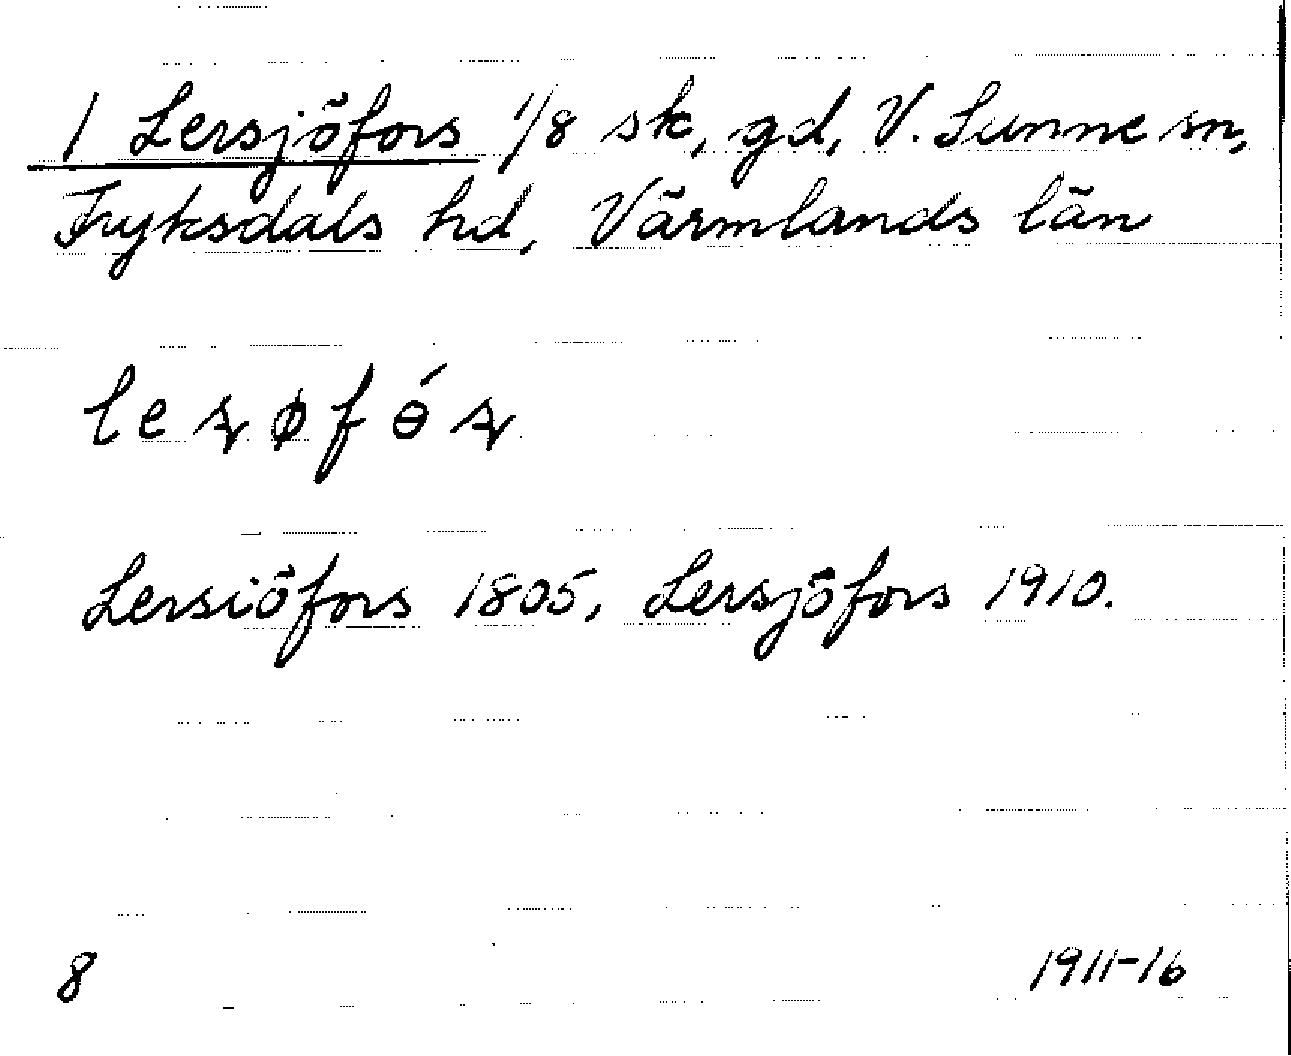 1 Lersjöfors 1/8 sk, gd, V. Sunne sn,
Fryksdals hd, Värmlands län
leꭋøfɵ́ꭋ
Lersiöfors 1805, Lersjöfors 1910.
8 1911-16